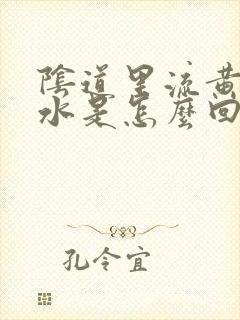 陰道里流黃
水是怎麼回
孔令宜